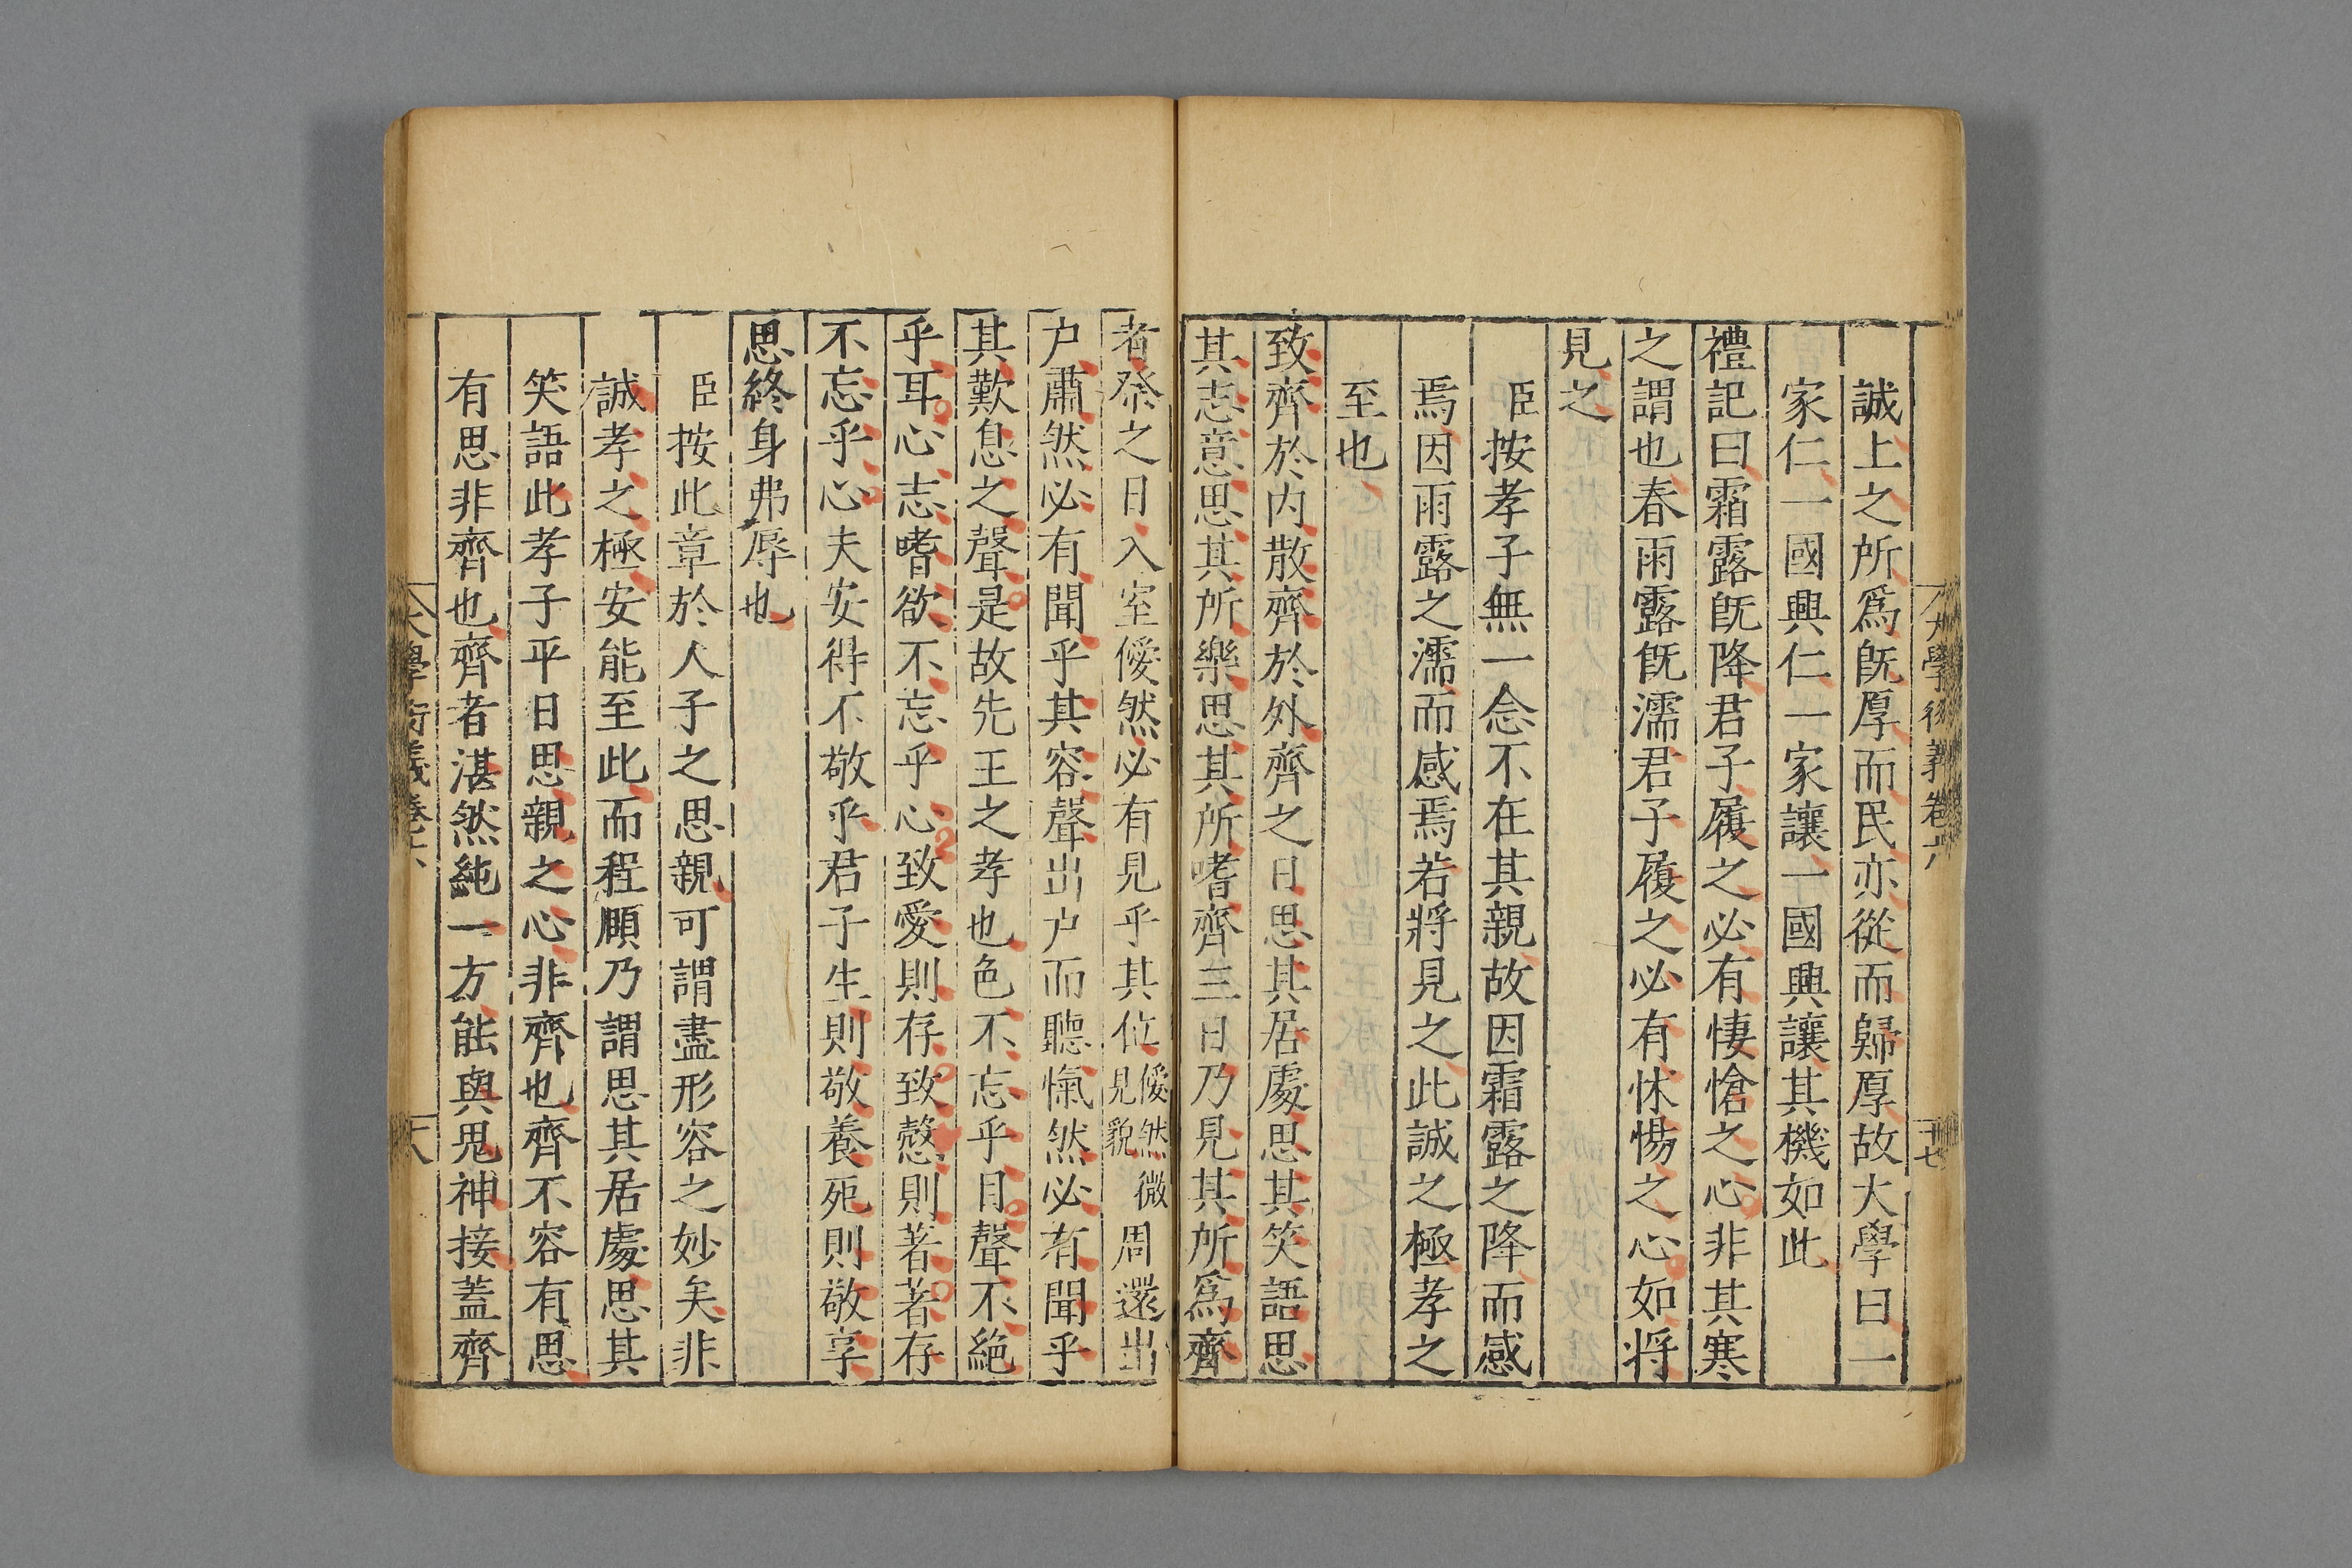 誠上之所爲旣厚而民亦從而歸厚故大學曰一
家仁一國興仁一家讓一國興讓其機如此
禮記曰霜露旣降君子履之必有悽愴之心非其寒
之謂也春雨露旣濡君子履之必有怵惕之心如將
見之
臣按孝子無一念不在其親故因霜露之降而感
焉因雨露之濡而感焉若將見之此誠之極孝之
至也
致齊於内散齊於外齊之日思其居處思其笑語思
其志意思其所樂思其所嗜齊三日乃見其所爲齊
者祭之日入室僾然必有見乎其位僾然微見貌周還出
户肅然必有聞乎其容聲出户而聽愾然必有聞乎
其歎息之聲是故先王之孝也色不忘乎目聲不絶
乎耳心志嗜欲不忘乎心致愛則存致慤則著著存
不忘乎心夫安得不敬乎君子生則敬養死則敬享
思終身弗辱也
臣按此章於人子之思親可謂盡形容之妙矣非
誠孝之極安能至此而程頤乃謂思其居處思其
笑語此孝子平日思親之心非齊也齊不容有思
有思非齊也齊者湛然純一方能與鬼神接蓋齊